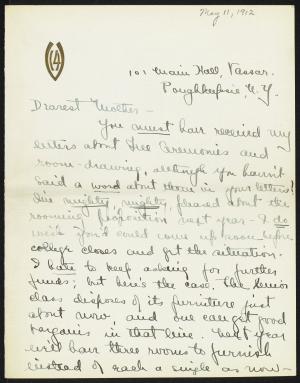 May 11, 1912
101 Main Hall, Vassar.
Poughkeepsie, N.Y.
Dearest Mother -
You must have received my
letters about Tree Ceremonies and
room-drawing, although you haven't
said a word about them in your letters!
I'm mighty, mighty pleased about the
rooming proposition next year - I do
wish you could come up now before
college closes and get the situation.
I hate to keep asking for further
funds; but here's the case. The Senior
class disposes of its furniture just
about now and one can get good
bargains in that line. Next year
we'll have three rooms to furnish
instead of each a single as now -